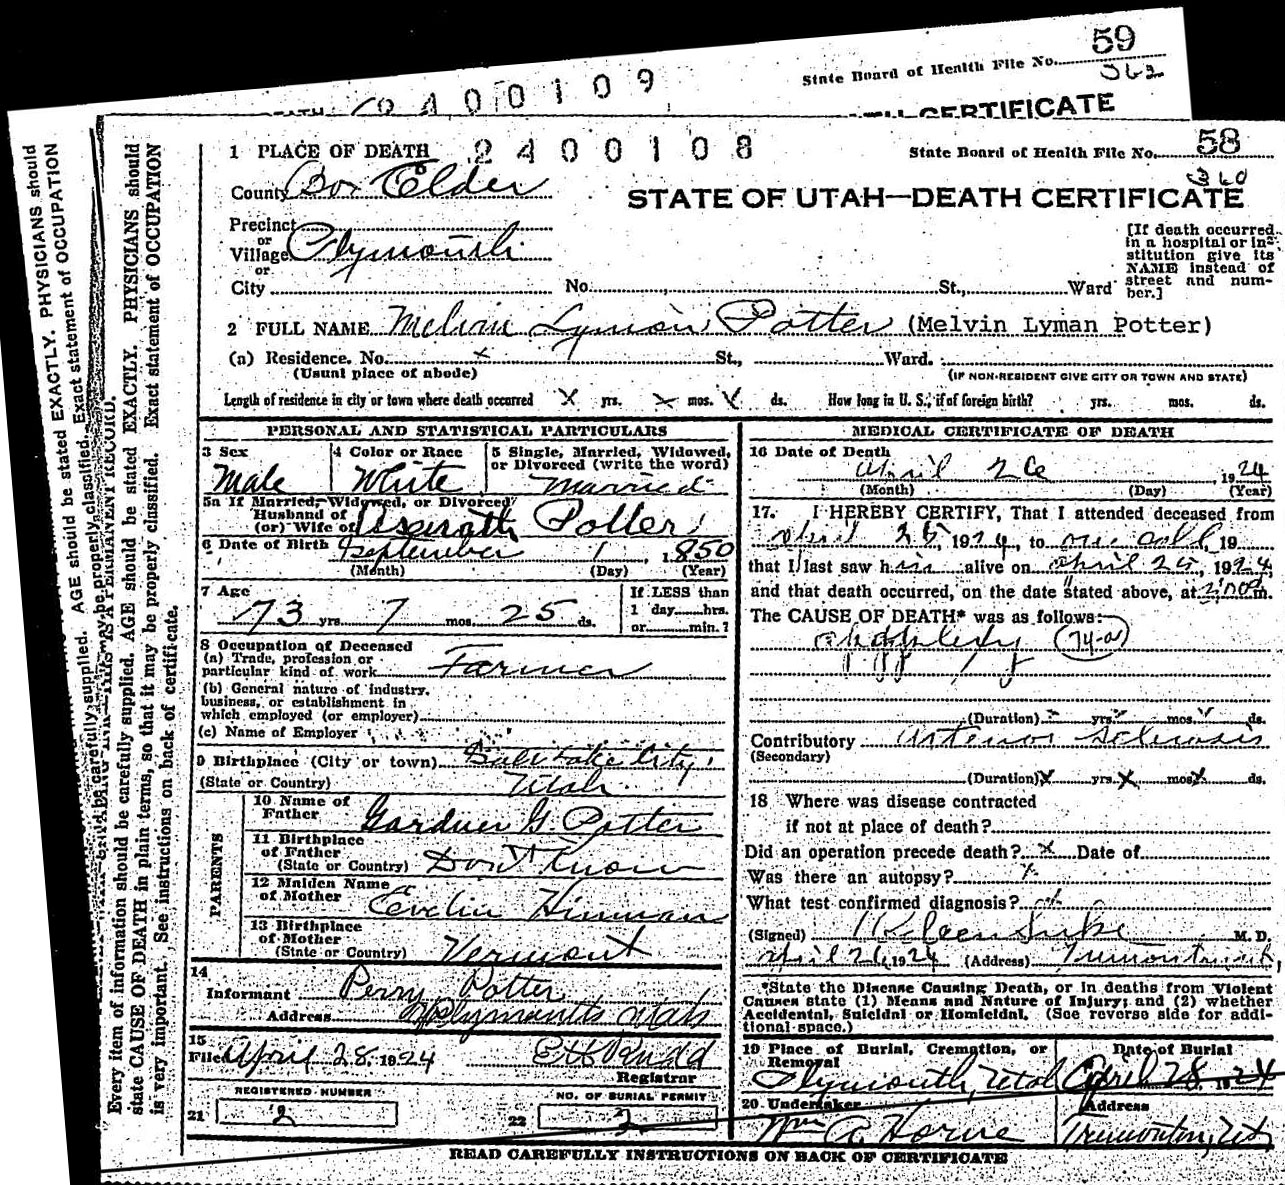 59
State Board of Health File No.
2400109
CERTIFICATE
1 PLACE OF DEATH 2400108
State Board of Health File No. 58
County Box Elder
STATE OF UTAH—DEATH CERTIFICATE
Precinct
or
Village Plymouth
or
City No. St., Ward
[If death occurred
in a hospital or in-
stitution give its
NAME instead of
street and num-
ber.]
2 FULL NAME Melvin Lyman Potter (Melvin Lyman Potter)
(a) Residence. No. x St., Ward.
(Usual place of abode) (IF NON-RESIDENT GIVE CITY OR TOWN AND STATE)
Length of residence in city or town where death occurred x yrs. x mos. x ds. How long in U. S., if of foreign birth? yrs. mos. ds.
PERSONAL AND STATISTICAL PARTICULARS
3 Sex
Male
4 Color or Race
White
5 Single, Married, Widowed,
or Divorced (write the word)
Married
5a If Married, Widowed, or Divorced
Husband of
(or) Wife of Asenath Potter
6 Date of Birth September 1, 1850
(Month) (Day) (Year)
7 Age
73 yrs. 7 mos. 25 ds.
If LESS than
1 day hrs.
or min.?
8 Occupation of Deceased
(a) Trade, profession or
particular kind of work Farmer
(b) General nature of industry,
business, or establishment in
which employed (or employer)
(c) Name of Employer
9 Birthplace (City or town) Salt Lake City,
(State or Country) Utah
PARENTS
10 Name of
Father Gardner G. Potter
11 Birthplace
of Father
(State or Country) Don't Know
12 Maiden Name
of Mother Evelin Hinman
13 Birthplace
of Mother
(State or Country) Vermont
14
Informant Perry Potter
Address Plymouth Utah
15
Filed April 28, 1924 Rudd
Registrar
REGISTERED NUMBER
21 2
NO. OF BURIAL PERMIT
22 2
MEDICAL CERTIFICATE OF DEATH
16 Date of Death
April 26, 1924
(Month) (Day) (Year)
17. I HEREBY CERTIFY, That I attended deceased from
April 25, 1924, to one call, 19
that I last saw him alive on April 25, 1924,
and that death occurred, on the date stated above, at m.
The CAUSE OF DEATH* was as follows:
Apoplexy (74-a)
(Duration) yrs. mos. ds.
Contributory Arterior Sclerosis
(Secondary)
(Duration) x yrs. x mos. x ds.
18 Where was disease contracted
if not at place of death?
Did an operation precede death? x Date of
Was there an autopsy? x
What test confirmed diagnosis?
(Signed) M. D.
April 26, 1924 (Address) Tremonton
*State the Disease Causing Death, or in deaths from Violent
Causes state (1) Means and Nature of Injury; and (2) whether
Accidental, Suicidal or Homicidal. (See reverse side for addi-
tional space.)
19 Place of Burial, Cremation, or
Removal
Plymouth, Utah
Date of Burial
April 28, 1924
20 Undertaker
Wm A. Horne
Address
Tremonton, Ut
READ CAREFULLY INSTRUCTIONS ON BACK OF CERTIFICATE
Every item of information should be carefully supplied. AGE should be stated EXACTLY. PHYSICIANS should
state CAUSE OF DEATH in plain terms, so that it may be properly classified. Exact statement of OCCUPATION
is very important. See instructions on back of certificate.